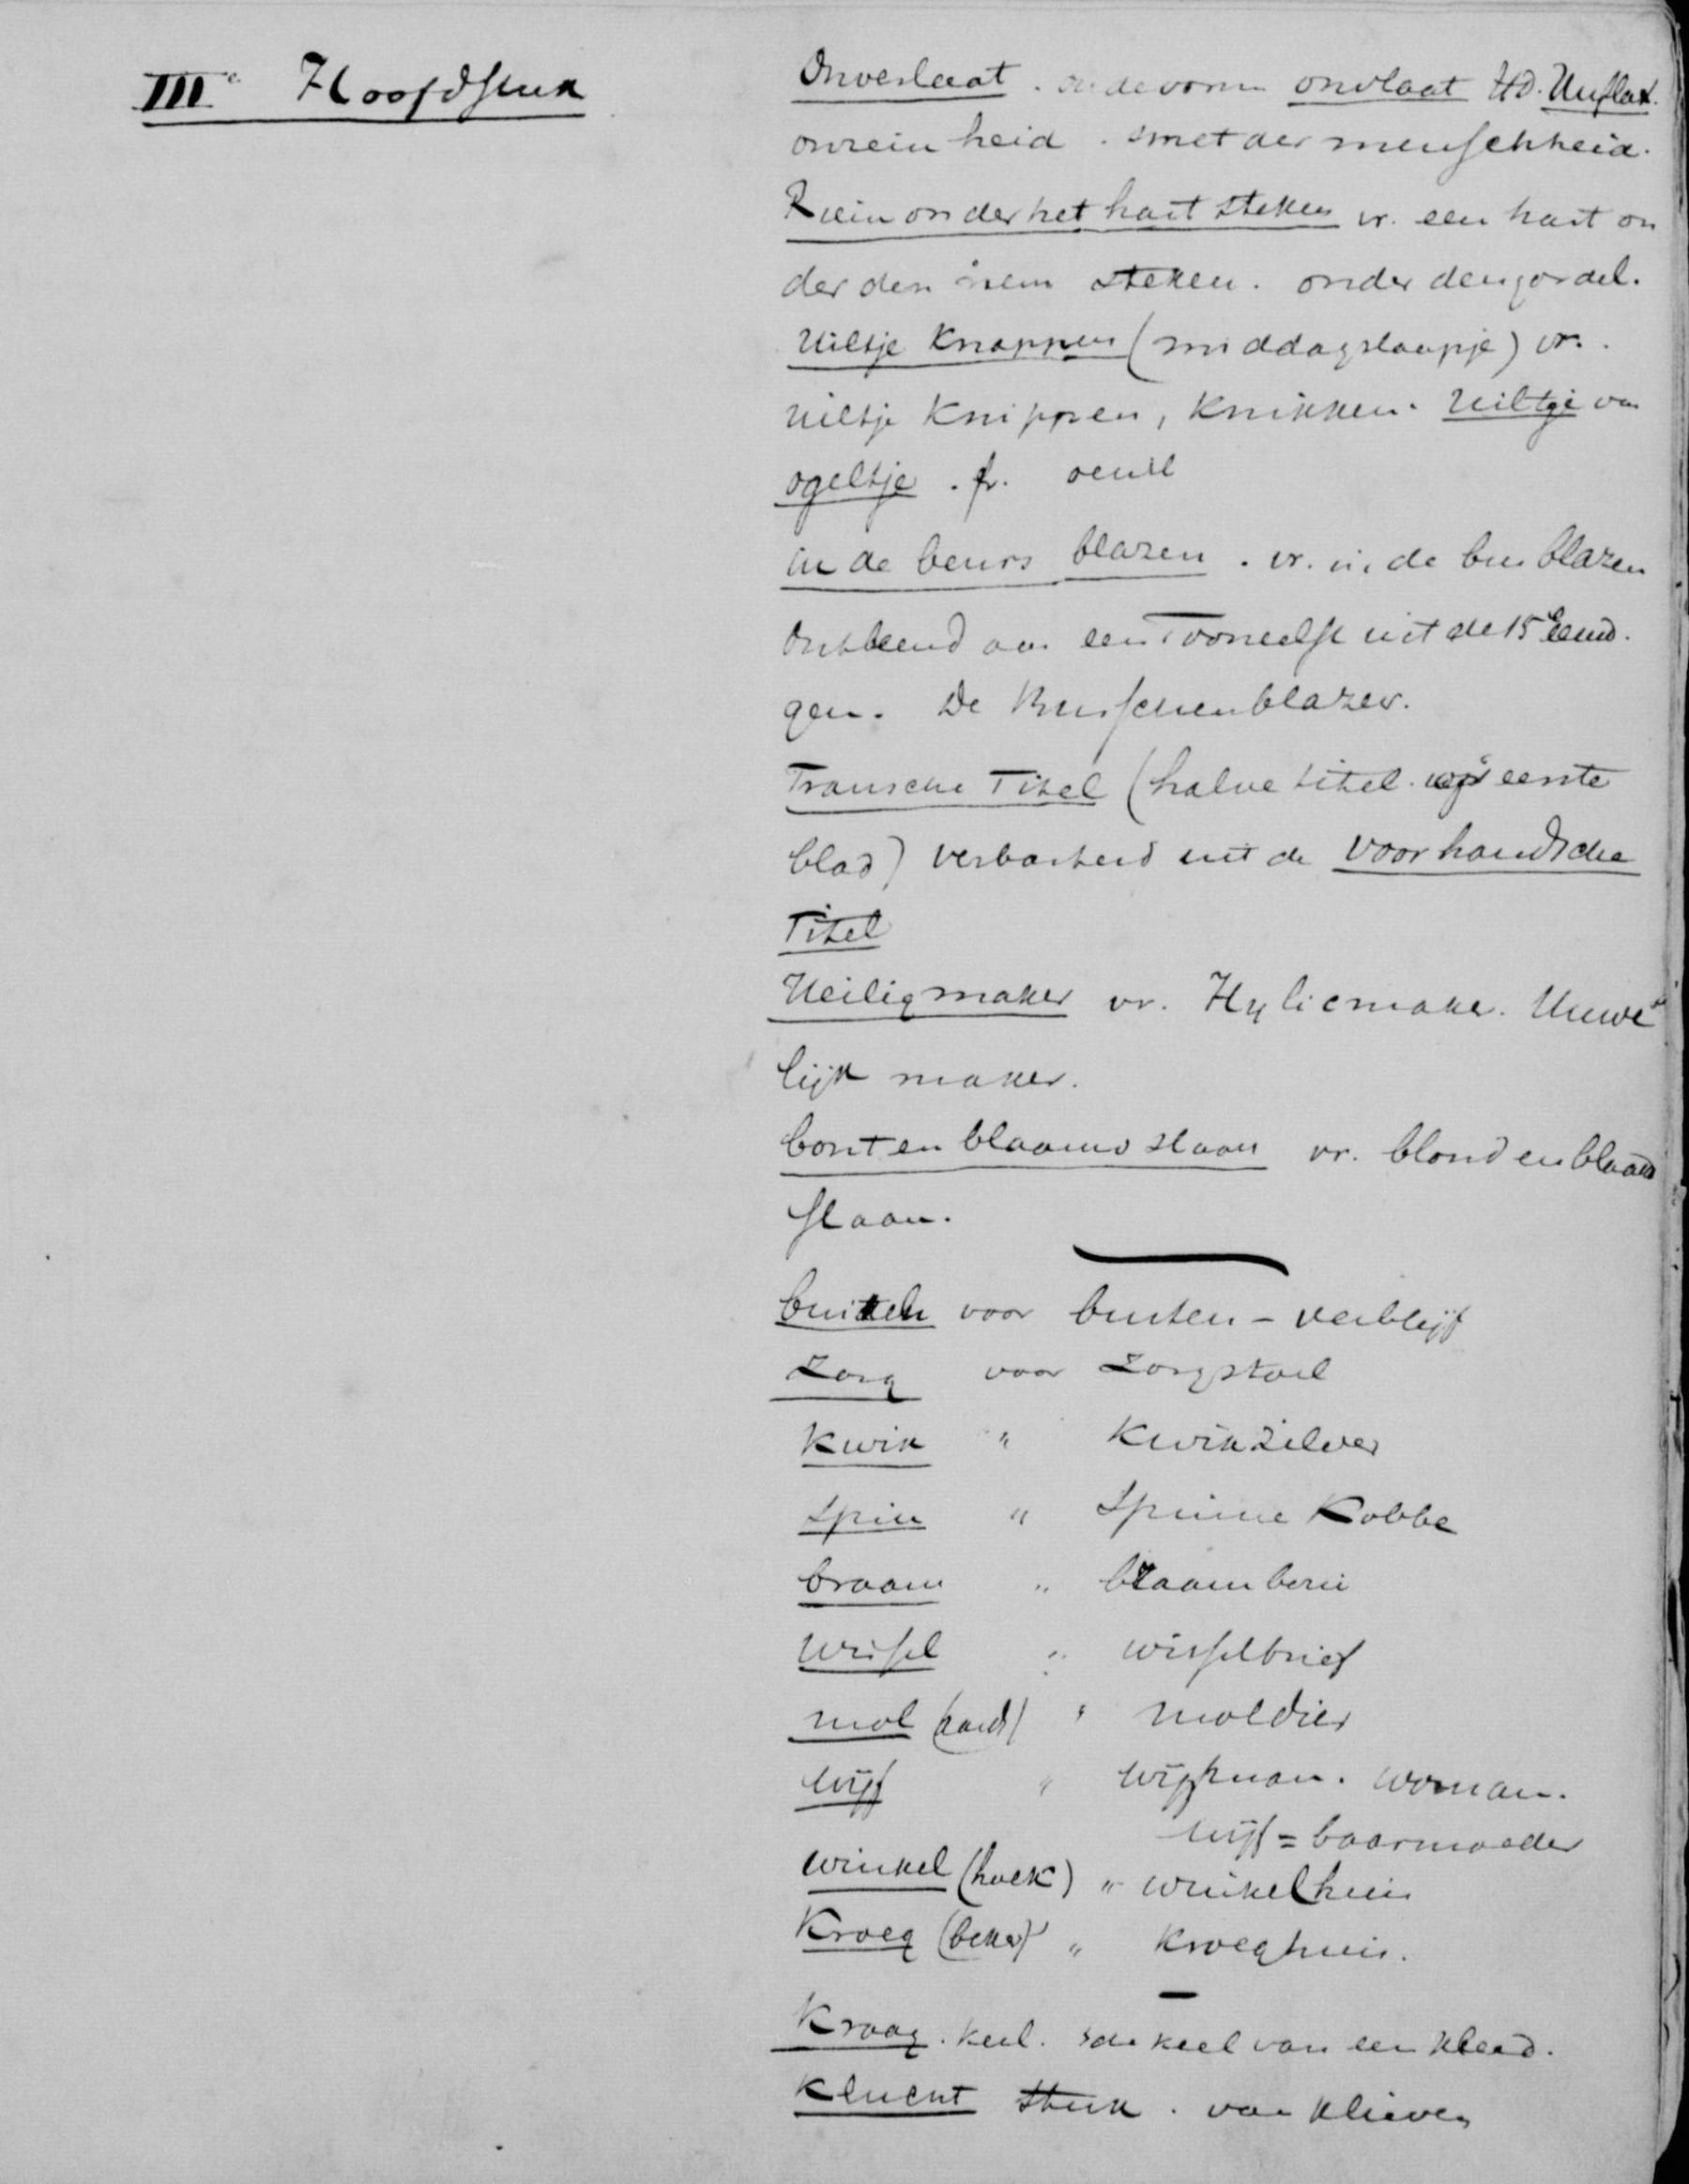 IIIe Hoofdstuk
Onverlaat . oude vorm onvlaat HD. Unflat.
onreinheid . smet der menschheid.
Riem onder het hart steken vr. een hart on
der den riem steken. onder den gordel.
Uiltje Knappen (middagslaapje) vr.
uiltje Knippen, Knikken. Uiltje van
ogeltje . fr. oeuil
in de beurs blazen . vr. in de bus blazen
Ontleend aan een Tooneelst uit de 15e eeuw.
gen. De Busschenblazer.
Fransche Titel (halve titel. op 't eerste
blad) verbasterd uit de voorhandsche
Titel
Heiligmaker vr. Hylicmaker. Huwe
lijk maker.
bont en blaauw slaan vr. blond en blaauw
slaan.
buiten voor buiten - verblijf
Zorg voor Zorgstoel
Kwik " Kwikzilver
Spin " Spinne Kobbe
braam " braambezie
Wissel " wisselbrief
mol (aard) " moldier
wijf " wijfman. woman.
wijf = baarmoeder
winkel (hoek) " winkelhuis
Kroeg (beker) " Kroeghuis.
Kraag . keel. de keel van een kleed.
Klucht stuk . van klieven